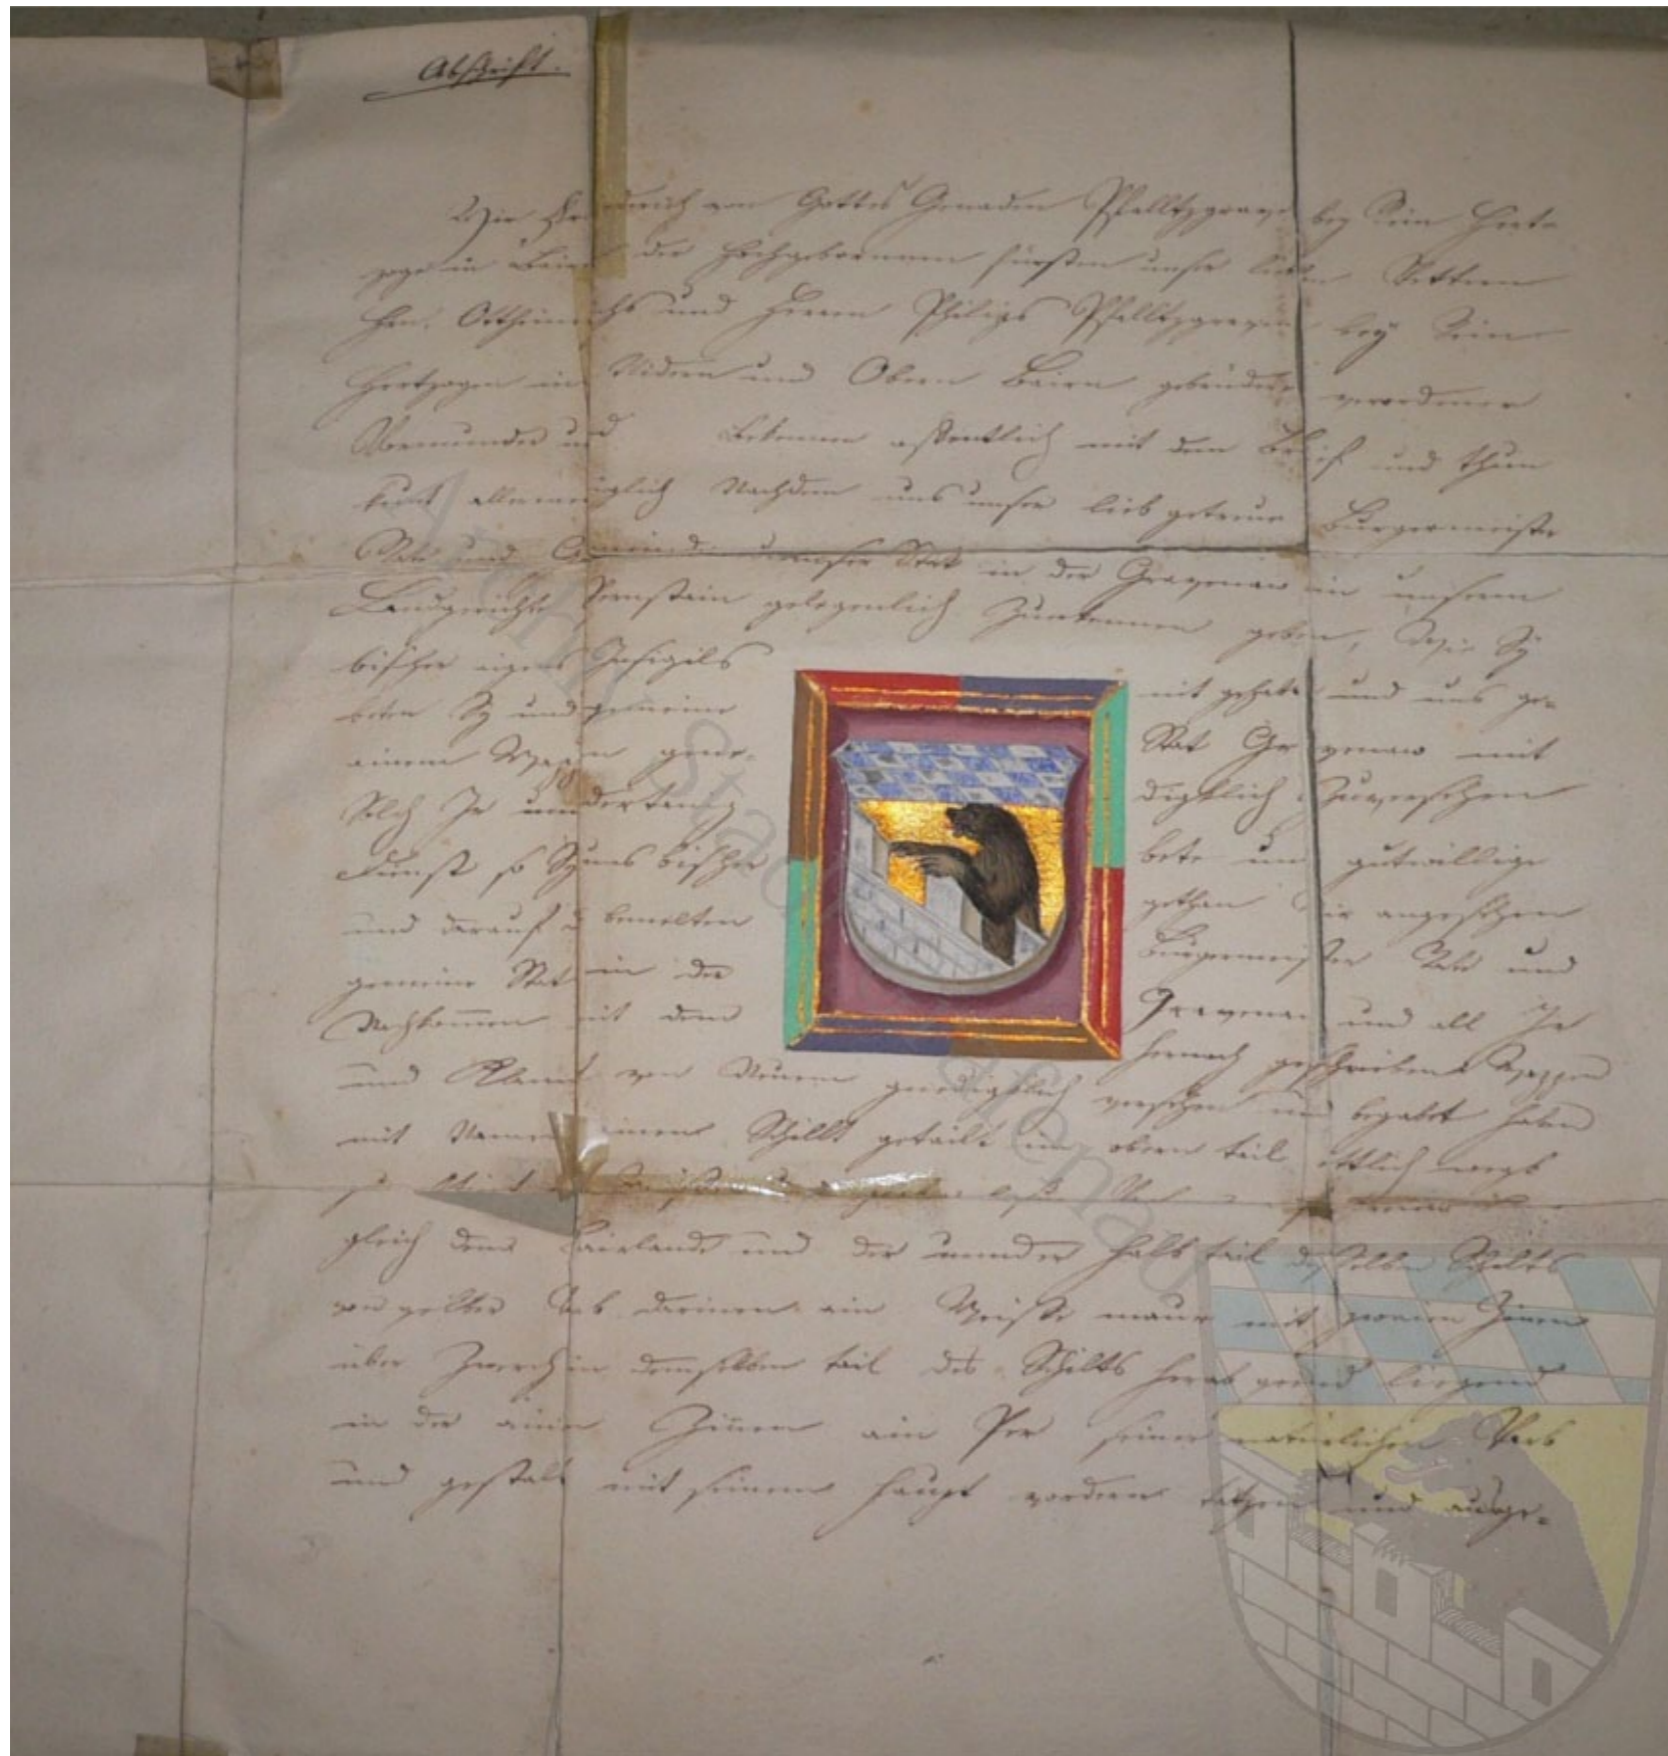 Abschrift.
Wir Friedrich von Gottes Genaden Pfalltzgrave bey Rein Hertz-
zoge in Bairn der Hochgebornnen fürsten unser lieben Vettern
Hrn. Ottheinrichs und Herrn Philips Pfalltzgraven bey Rein
Hertzogen in Nidern und Obern Bairn gebrüeder verordneter
Vormunder und Bekennen offentlich mit dem Brief und thun
kunt allermeniglich Nachdem uns unser lieb getreue Burgermeister
Rate und unser Stat in der Gravenaw in unserm
Landgerichte Pernstain gelegenlich Zuerkennen geben, Wie Sy
bisher aigens Insigils nit gehabt und uns ge-
beten Sy und gemeine Stat Gravenaw mit
einem Wappen gene- digklich Zuversehen
Solch Ir undertenig bete und gutwillige
Dienst so Sy uns bisher gethan Wir angesehen
und darauf bemelten Burgermeister Rate und
gemeine Stat in der Gravenaw und all Ir
Nachkomen mit dem hernach geschriben Wappen
und Klainot von Neuem genedigklich versehen und begabt haben
mit Namen einen Schillt getailt im obern tail ettlich wegk
gleich dem Bairlande und der unnder halb tail desselben Schilts
von gelber Varb darinnen ain Weisse maur mit zwaien Zinnen
über Zwerch in demselben tail des Schilts herab liegend
in der ainen Zinnen ain Per seiner natürlichen Varb
und gestalt mit seinem haupt vordern tatzen und ausge-
Archiv Stadt Grafenau